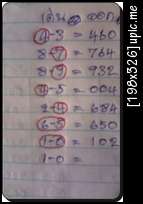 เด่น ออก
4-3 = 460
8-7 = 764
8-9 = 932
4-5 = 004
2-4 = 684
6-5 = 650
1-6 = 102
1-0 =
[198x326] upic.me